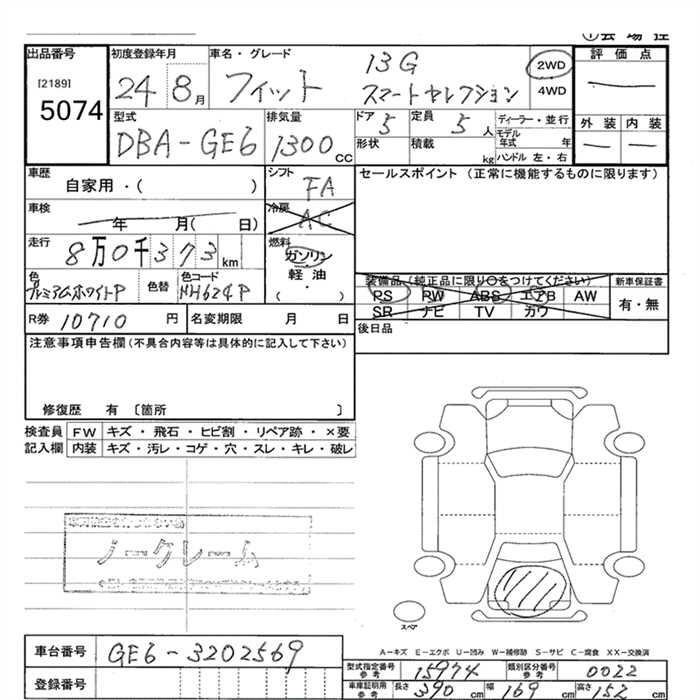 出品番号
[2189]
5074
初度登録年月
24 8月
車名・グレード
フィット
13G
スマートセレクション
2WD
4WD
評価点
外装 内装
型式
DBA-GE6
排気量
1300 cc
ドア
5
定員
5 人
形状
積載
kg
ディーラー・並行
モデル年式 年
ハンドル 左・右
車歴
自家用・( )
シフト
FA
セールスポイント (正常に機能するものに限ります)
車検
年 月( 日)
冷房
AC
走行
8万0千373km
燃料
ガソリン
軽油
( ・ )
色
プレミアムホワイトP
色替
色コード
NH624P
装備品(純正品に限り○をつけてください)
PS PW ABS エアB AW
SR ナビ TV カワ
新車保証書
有・無
R券 10710 円
名変期限 月 日
後日品
注意事項申告欄(不具合内容等は具体的に記入して下さい)
修復歴 有 〔箇所 〕
検査員記入欄
FW キズ・飛石・ヒビ割・リペア跡・×要
内装 キズ・汚レ・コゲ・穴・スレ・キレ・破レ
ノークレーム
スペア
A-キズ E-エクボ U-凹み W-補修跡 S-サビ C-腐食 XX-交換済
車台番号 GE6-3202569
登録番号
型式指定番号参考 15974
類別区分番号参考 0022
車庫証明用参考 長さ 390 cm 幅 169 cm 高さ 152 cm